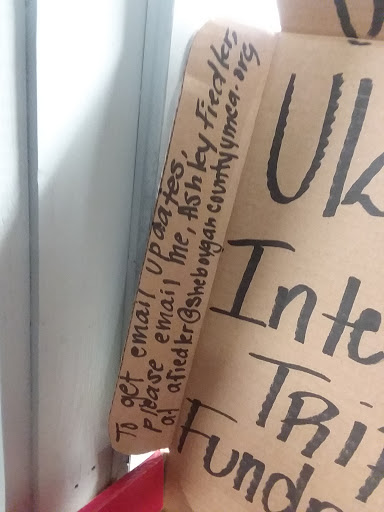 To get email updates,
please email me, Ashley Fiedler,
at afiedlr@sheboygancountyymca.org
Uk
Inte
Tri
Fundr